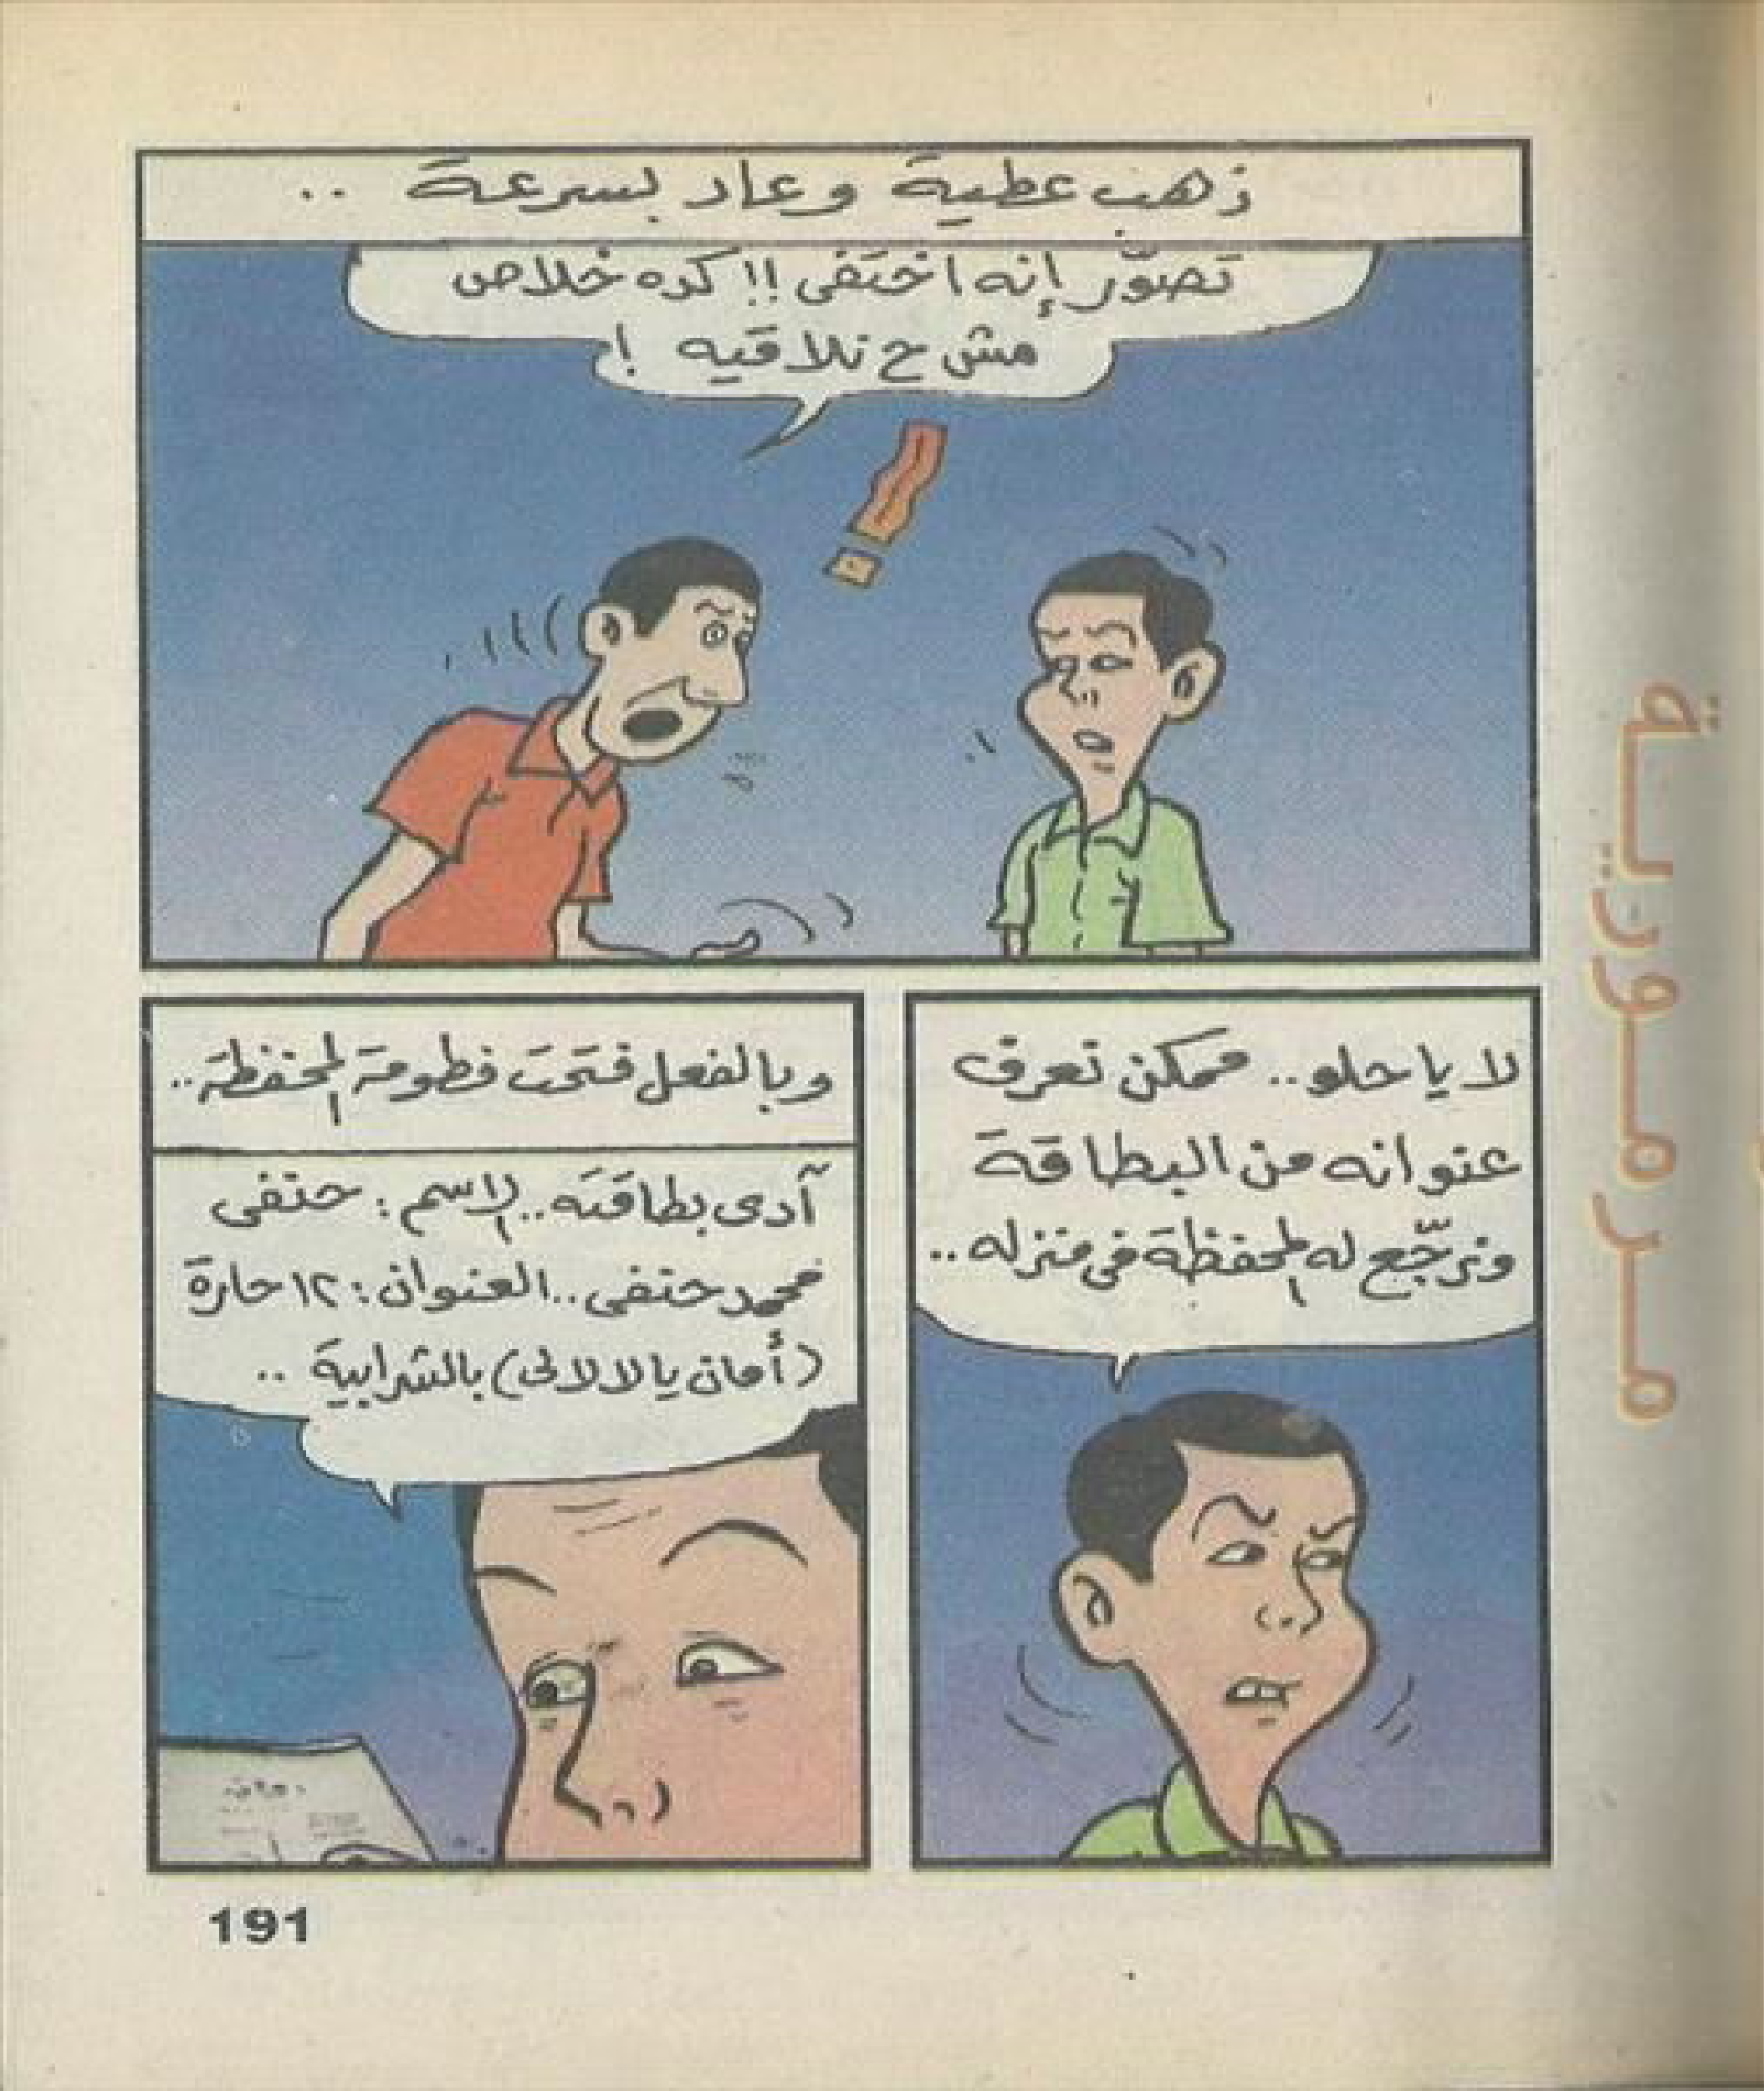 ذهب عطية وعاد بسرعة ..
تصوّر إنه اختفى !! كده خلاص
مش ح نلاقيه !
لا يا حلو .. ممكن تعرف
عنوانه من البطاقة
ونرجّع له المحفظة فى منزله ..
وبالفعل فتحت فطومة المحفظة ..
آدى بطاقته .. الاسم : حنفى
محمد حنفى .. العنوان : ١٢ حارة
(أمان يا لا لالى) بالشرابية ..
مرمورية
191